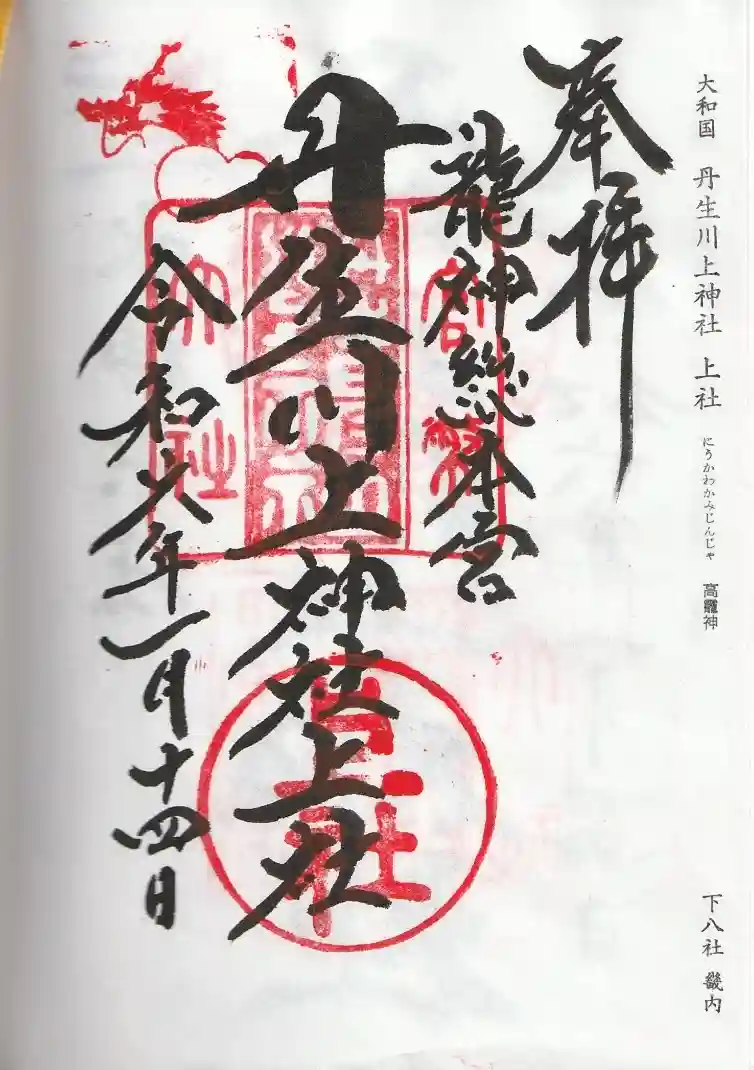 大和国 丹生川上神社 上社 にうかわかみじんじゃ 高龗神
下八社 畿内
奉拝
龍神総本宮
丹生川上神社上社
令和六年一月十四日
上社